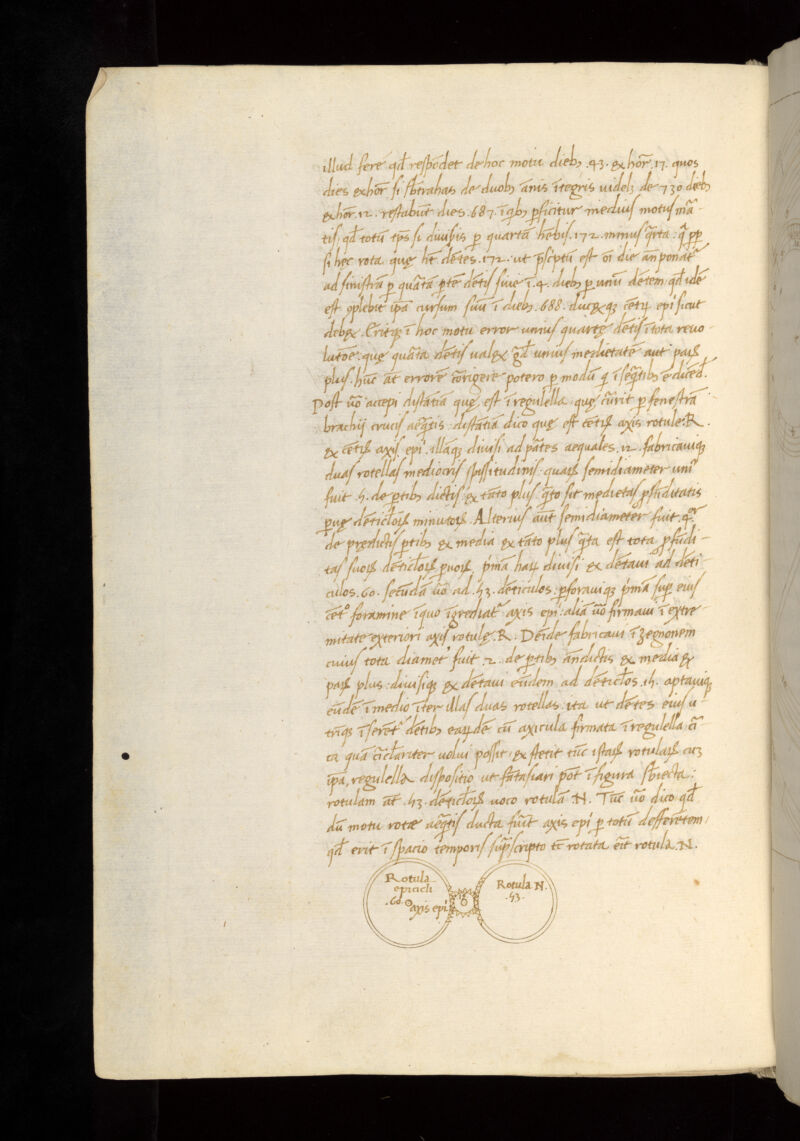 illud fere qđ respōdet de hoc motu dieb₃ .43. ex hor̄ .17. quos
dies ex hor̄ si sb̄trahas de duob₃ ānis ītegris uidel₃ de 730 dieb₃
ex hor̄ .12. restabūt dies .687. ī qib₃ pficitur medius motus mā
tis . qđ totū tp̄s si diuiseris p quartā hēbis .172. minus qrta :
si hec rota que ht̄ dētes .172. ut pscptū est oī die an ponatr
ad sinistrā p quātā ptē dētis siue ī .4. dieb₃ p unū dētem qđ idē
est oplebit ipā cursum suū ī dieb₃ .688. epi sicut
debet . Eritq₃ ī hoc motu error unius quarte dētis ī tota reuo
lutōe . que quāta dētis ualet gđ unius medietatē aut
plus . hūc āt errorē cōrigere potero p modū q ī seqtib₃ ediced̄.
Post uō accepi distātia que est ī regulella . que cūrit p fenestrā
brachij crucis aeqtis . distātia dico que est axis rotule R.
ex axis epi . illāq₃ diuisi ad ptes aequales .12. fabricauiq₃
duas rotellas mediocris spissitudinis . semidiameter uniꝰ
fuit .5. de ptib₃ dictis ex tāto plus qto sit medietas pfūditatis
minutoꝝ. Alterius aūt semidiameter fuit .4ᵒʳ.
de predictis ptib₃ ex media ex tāto plus qta est tota pfūdi
tas suoꝝ dēticloꝝ puoꝝ . pmā haꝝ diuisi ex dētaui ad dēti
culos .60. secūdā uō ad .53. dēticulos : pforauiq₃ pmā sup eius
cētᵒ foramine ī quo īgrediatr axis epi . aliā uō firmaui ī extre
mitate exteriori axis rotule .R. Deīde fabricaui
cuius tota diamet fuit .2. de ptib₃ āndictis ex media ex
plus . diuisiq₃ ex dētaui eūdem ad dēticlos .15. aptauiq₃
eūdē ī medio īter illas duas rotellas . ita ut dētes eius u
triq₃ īserēt dētib₃ eaꝝdē cū axicula firmata ī regulella cī
ca quā cīclariter uolui possit . ex stetit tūc istaꝝ rotulaꝝ cu₃
ipā regulella dispositio ut fātasiari pōt ī figura sb̄iecta :
rotulam āt .53. dēticloꝝ uoco rotulā .N. Tūc uō dico qđ
dū motu rotæ aeqtis ducta fūit axis epi p totū defferētem
qđ erit ī spacio temporis supscripto tc̄ rotata eīt rotula .N.
Rotula
epicicli
.60.
axis epi
Rotula .N.
.53.